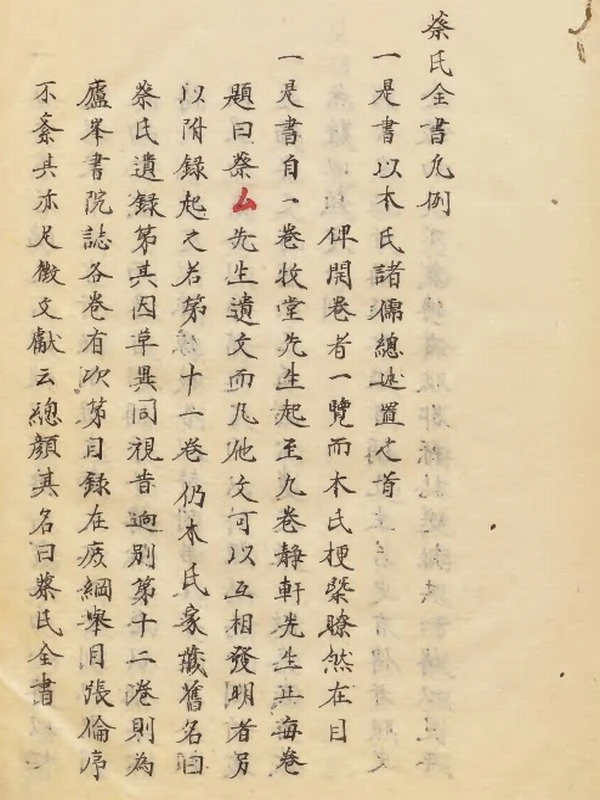 蔡氏全書凡例
一是書以本氏諸儒總述置之首
俾開卷者一覽而本氏梗槩瞭然在目
一是書自一卷牧堂先生起至九卷靜軒先生止每卷
題曰蔡厶先生遺文而凡他文可以互相發明者另
以附録起之若第十一卷仍本氏家藏舊名曰
蔡氏遺録第其因革異同視昔逈別第十二卷則為
廬峯書院誌各卷有次第目録在庶綱舉目張倫序
不紊其亦足徵文獻云總顏其名曰蔡氏全書